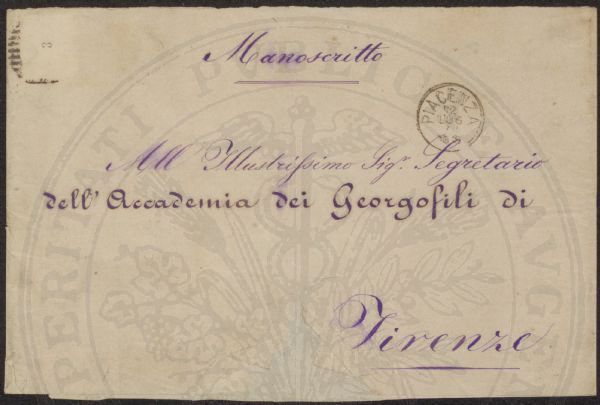 Manoscritto
PIACENZA
12
LUG
All' Illustrissimo Sigr. Segretario
dell' Accademia dei Georgofili di
Firenze
PROSPERITATI PUBLICAE AUGENDAE